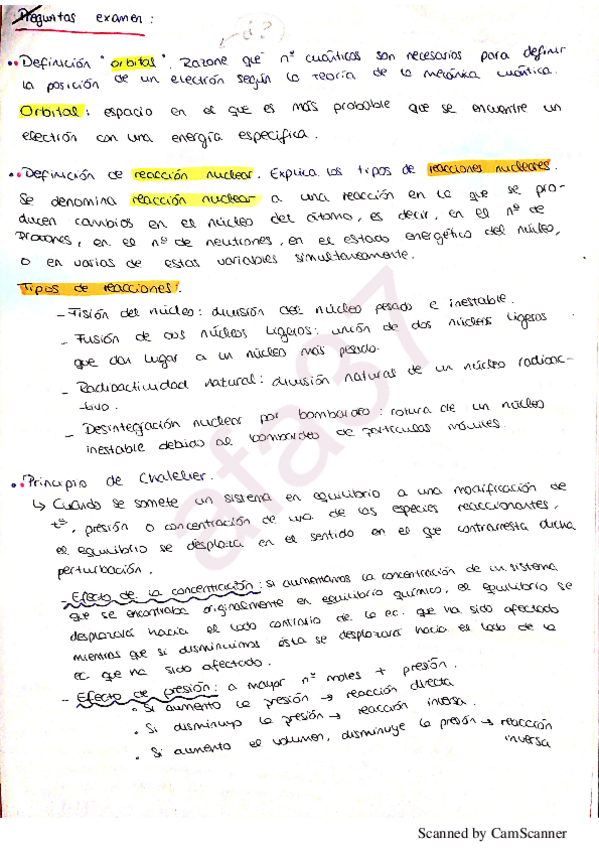 Preguntas examen:
¿i?
Definición "orbital". Razone que nº cuánticos son necesarios para definir
la posición de un electrón según la teoría de la mecánica cuántica.
Orbital: espacio en el que es más probable que se encuentre un
electrón con una energía específica.
Definición de reacción nuclear. Explica los tipos de reacciones nucleares.
Se denomina reacción nuclear a una reacción en la que se pro-
ducen cambios en el núcleo del átomo, es decir, en el nº de
protones, en el nº de neutrones, en el estado energético del núcleo,
o en varias de estas variables simultáneamente.
Tipos de reacciones:
- Fisión del núcleo: división del núcleo pesado e inestable.
- Fusión de dos núcleos ligeros: unión de dos núcleos ligeros
que dan lugar a un núcleo más pesado.
- Radioactividad natural: división natural de un núcleo radioac-
-tivo.
- Desintegración nuclear por bombardeo: rotura de un núcleo
inestable debido al bombardeo de partículas móviles.
Principio de Chatelier.
↳ Cuando se somete un sistema en equilibrio a una modificación de
tª, presión o concentración de una de las especies reaccionantes,
el equilibrio se desplaza en el sentido en el que contrarresta dicha
perturbación.
- Efecto de la concentración: si aumentamos la concentración de un sistema
que se encontraba originalmente en equilibrio químico, el equilibrio se
desplazará hacia el lado contrario de la ec. que ha sido afectado
mientras que si disminuimos ésta se desplazará hacia el lado de la
ec que ha sido afectado.
- Efecto de presión: a mayor nº moles + presión.
• Si aumento la presión → reacción directa
• Si disminuyo la presión → reacción inversa.
• Si aumento el volumen, disminuye la presión → reacción
inversa
afa37
Scanned by CamScanner